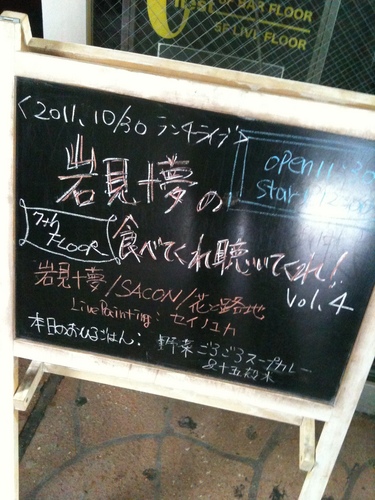 est 5F BAR FLOOR
6F LIVE FLOOR
<2011.10/30 ランチライブ>
open 11:30
start 12:00
岩見十夢の
7th FLOOR
食べてくれ聴いてくれ!
Vol.4
岩見十夢/SACON/花と路地
Live Painting: セイノユカ
本日のおひるごはん: 野菜ごろごろスープカレー
&十五穀米